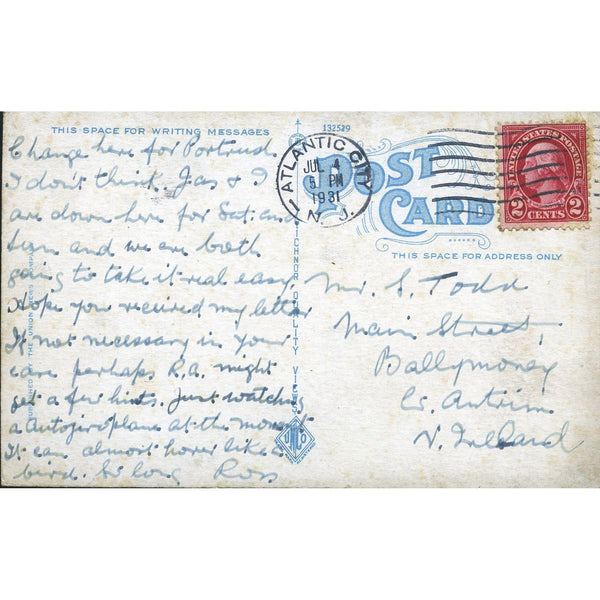 THIS SPACE FOR WRITING MESSAGES
Change here for Portrush
I don't think. Jas & I
are down here for Sat. and
Sun and we are both
going to take it real easy
Hope you received my letter
If not necessary in your
case perhaps R.A. might
get a few hints. Just watching
a Autogiroplane at the moment
It can almost hover like a
bird. So long Ross
132529
POST CARD
THIS SPACE FOR ADDRESS ONLY
ATLANTIC CITY
JUL 4
5 PM
1931
N. J.
UNITED STATES POSTAGE
2 CENTS 2
Mr. S. Todd
Main Street,
Ballymoney
Co. Antrim
N. Ireland
TICHNOR QUALITY VIEWS
PUBLISHED THE UNION NEWS COMPANY